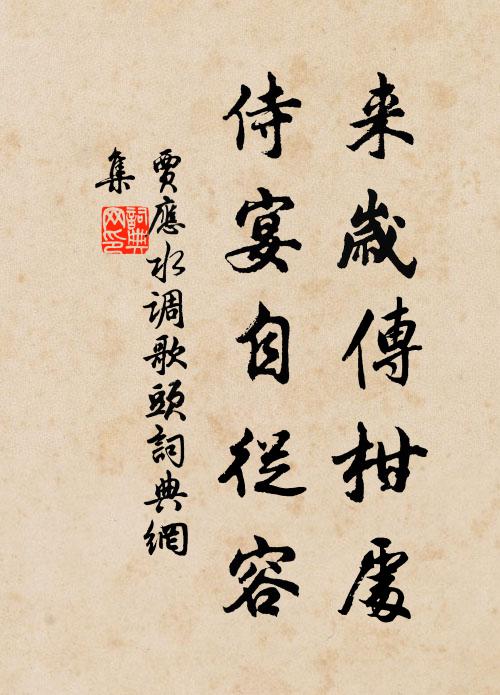 来歲傳柑處
侍宴自從容
賈應水调歌頭詞典網
集
詞典
网印